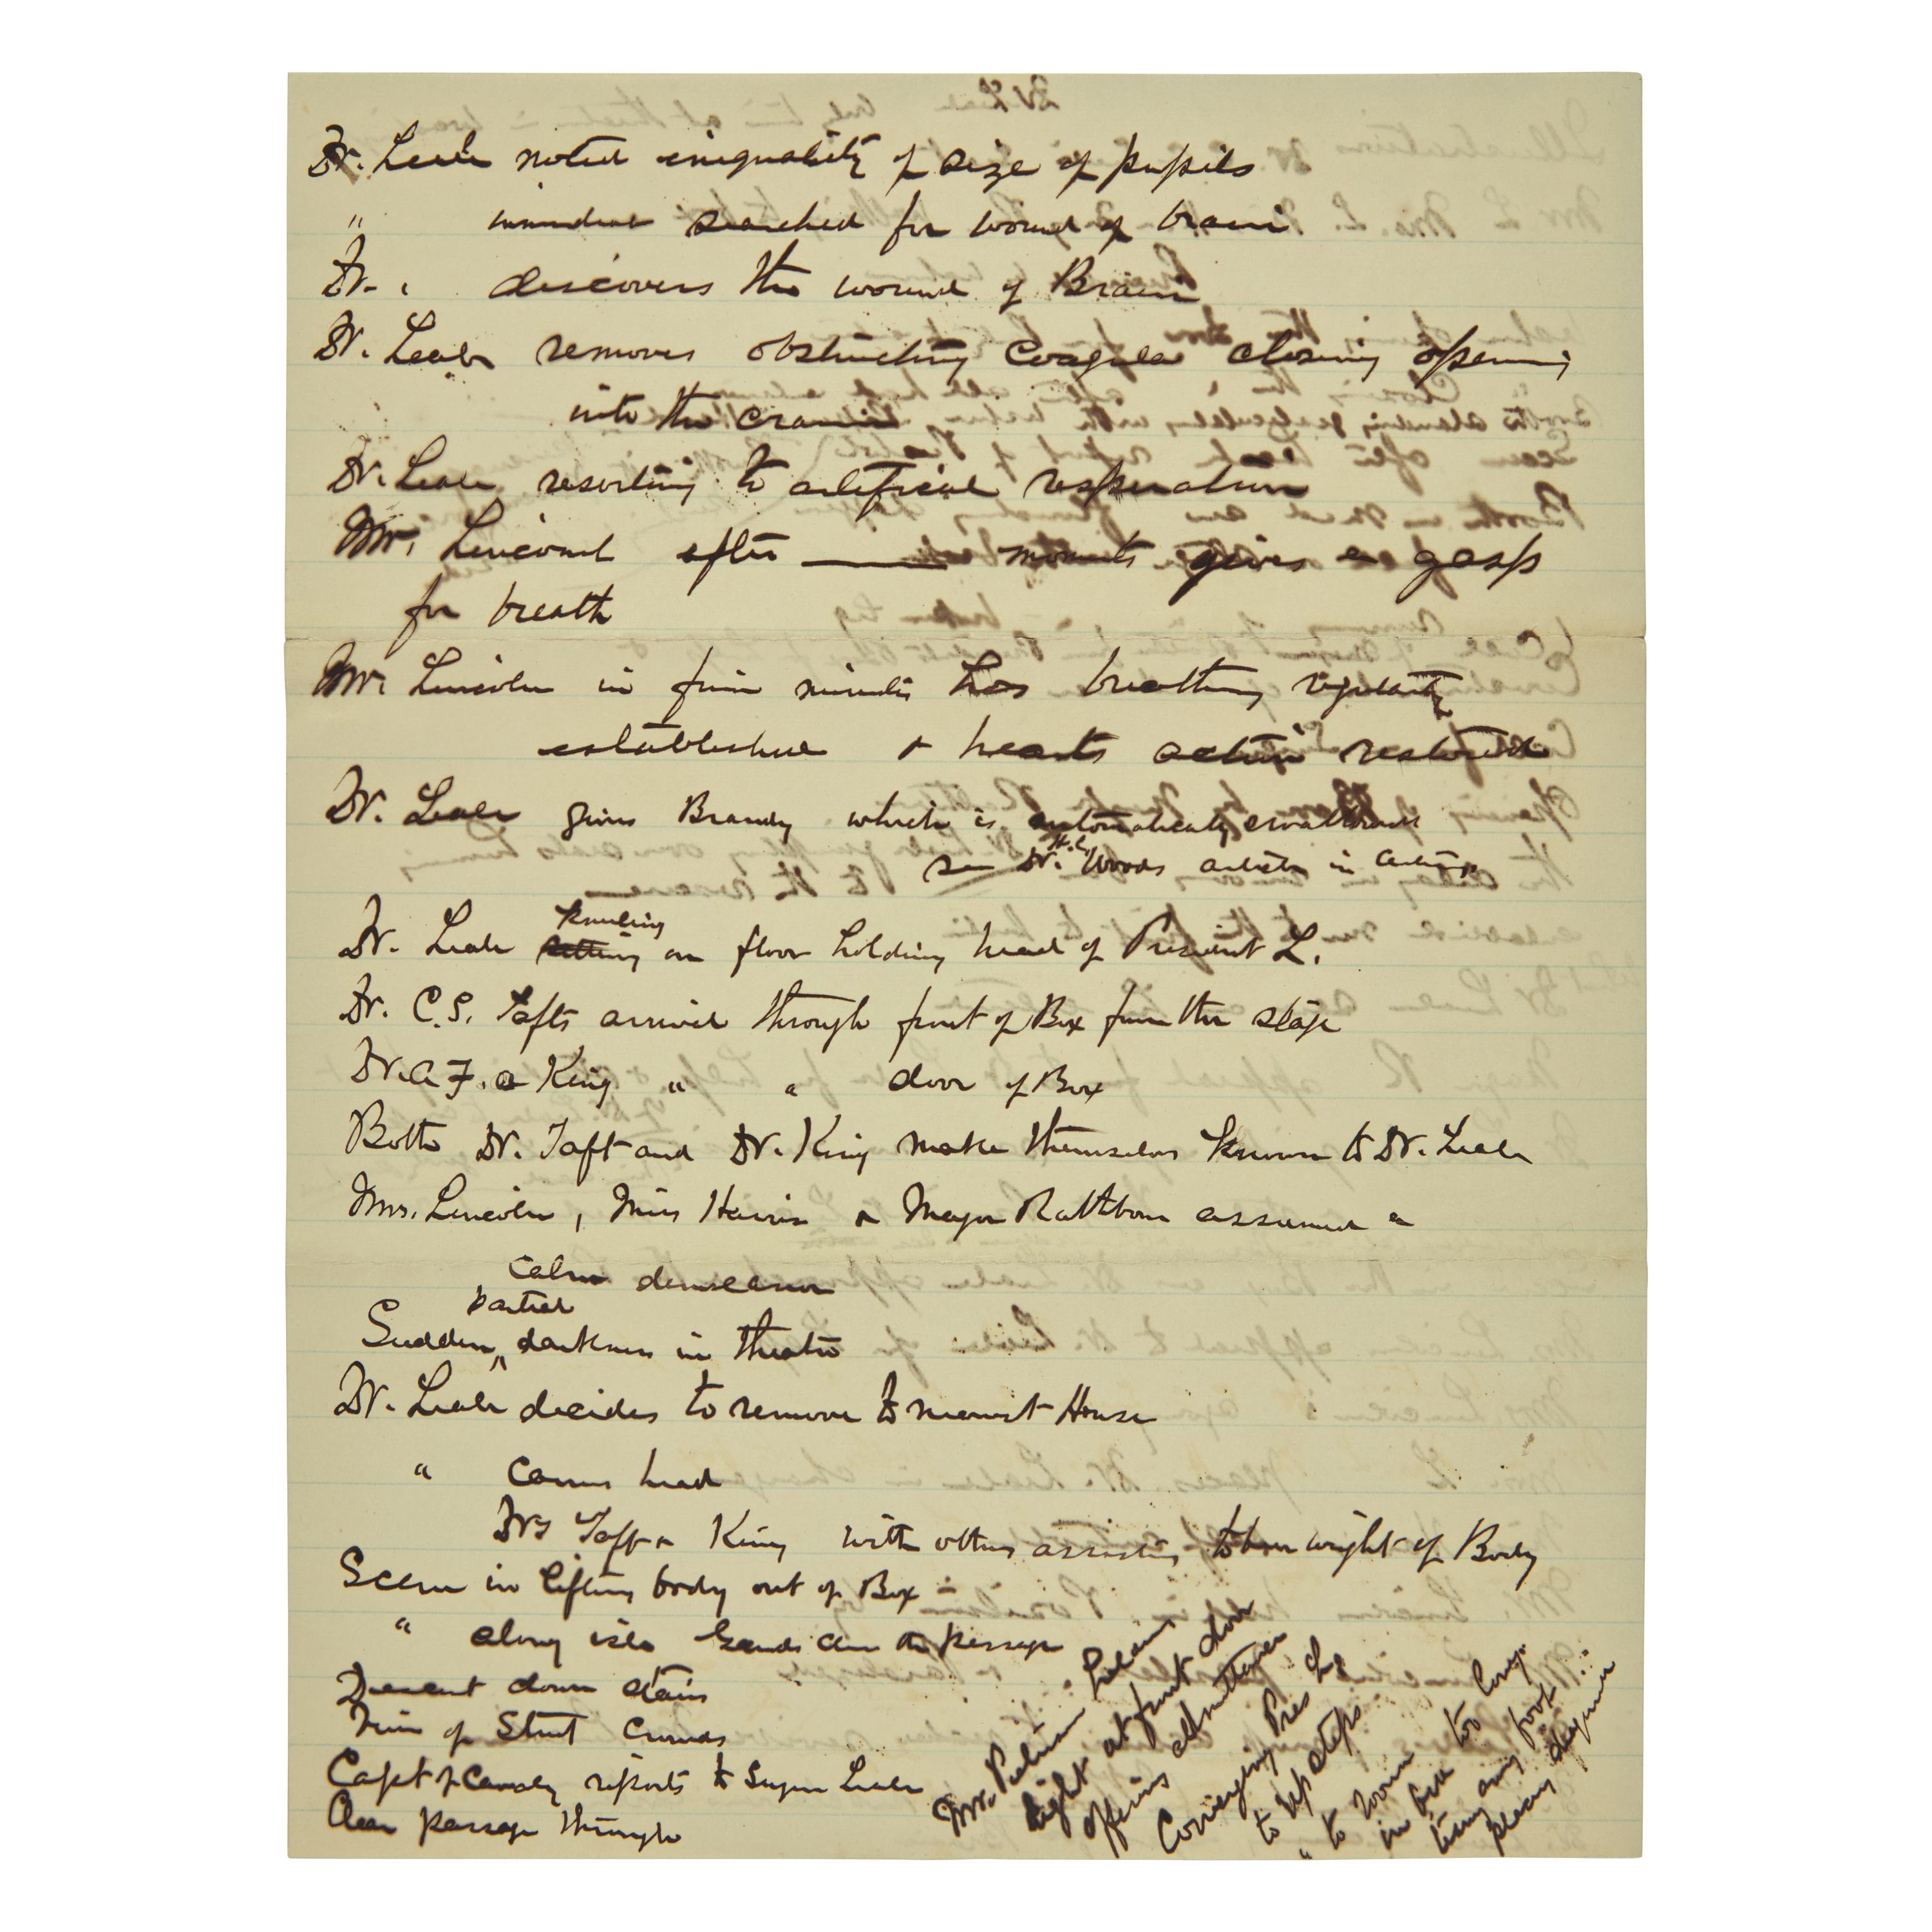 Dr. Leale noted inequality of size of pupils
" immediat searched for wound of brain
Dr. " discovers the wound of Brain
Dr. Leale removes obstructing Coagula closing opening
into the cranium
Dr. Leale resorting to artificial respiration
Mr. Lincoln after ____ moments gives a gasp
for breath
Mr. Lincoln in minutes has breathing regularity
established & hearts action restored
Dr. Leale gives Brandy which is automatically swallowed
see Dr. H.C. Woods article in
Dr. Leale sitting kneeling on floor holding head of President L.
Dr. C.S. Tafts arrived through front of Box from the stage
Dr. A F. A King " " door of Box
Both Dr. Taft and Dr. King make themselves known to Dr. Leale
Mrs. Lincoln, Miss Harris & Major Rathbone assumed a
calm demeanor
Sudden partial darkness in theatre
Dr. Leale decides to remove to nearest House
" Carries head
Drs Taft & King with others assisting to bear weight of Body
Scene in lifting body out of Box
" along isle Guards clear the passage
Descent down stairs
View of Street Crowds
Capt of Cavalry reports to Surgeon Leale
Clear passage through
Mr. Peterson holding
light at front door
offering admittance
Conveying Pres L.
to up steps
" to room
in bed too long.
foot